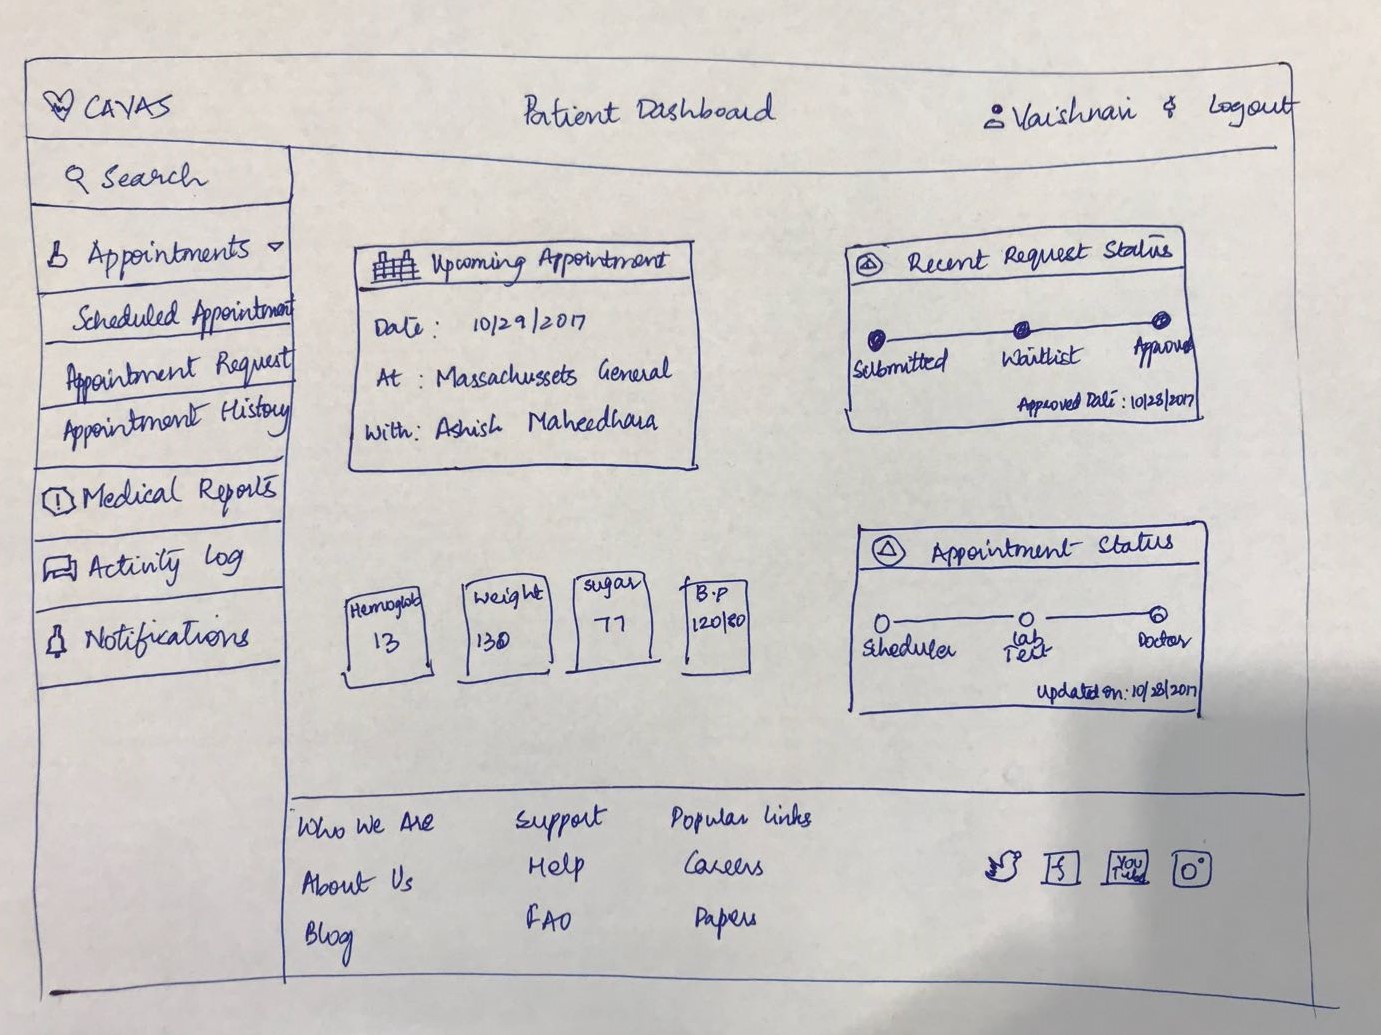 CAVAS
Patient Dashboard
Vaishnavi
Logout
Search
Appointments
Scheduled Appointment
Appointment Request
Appointment History
Medical Reports
Activity Log
Notifications
Upcoming Appointment
Date: 10/29/2017
At: Massachussets General
With: Ashish Maheedhara
Recent Request Status
Submitted
Waitlist
Approved
Approved Date: 10/28/2017
Hemoglob
13
Weight
130
Sugar
77
B.P
120/80
Appointment Status
Scheduler
Lab
Test
Doctor
Updated on: 10/28/2017
Who We Are
About Us
Blog
Support
Help
FAQ
Popular Links
Careers
Papers
f
You
Tube